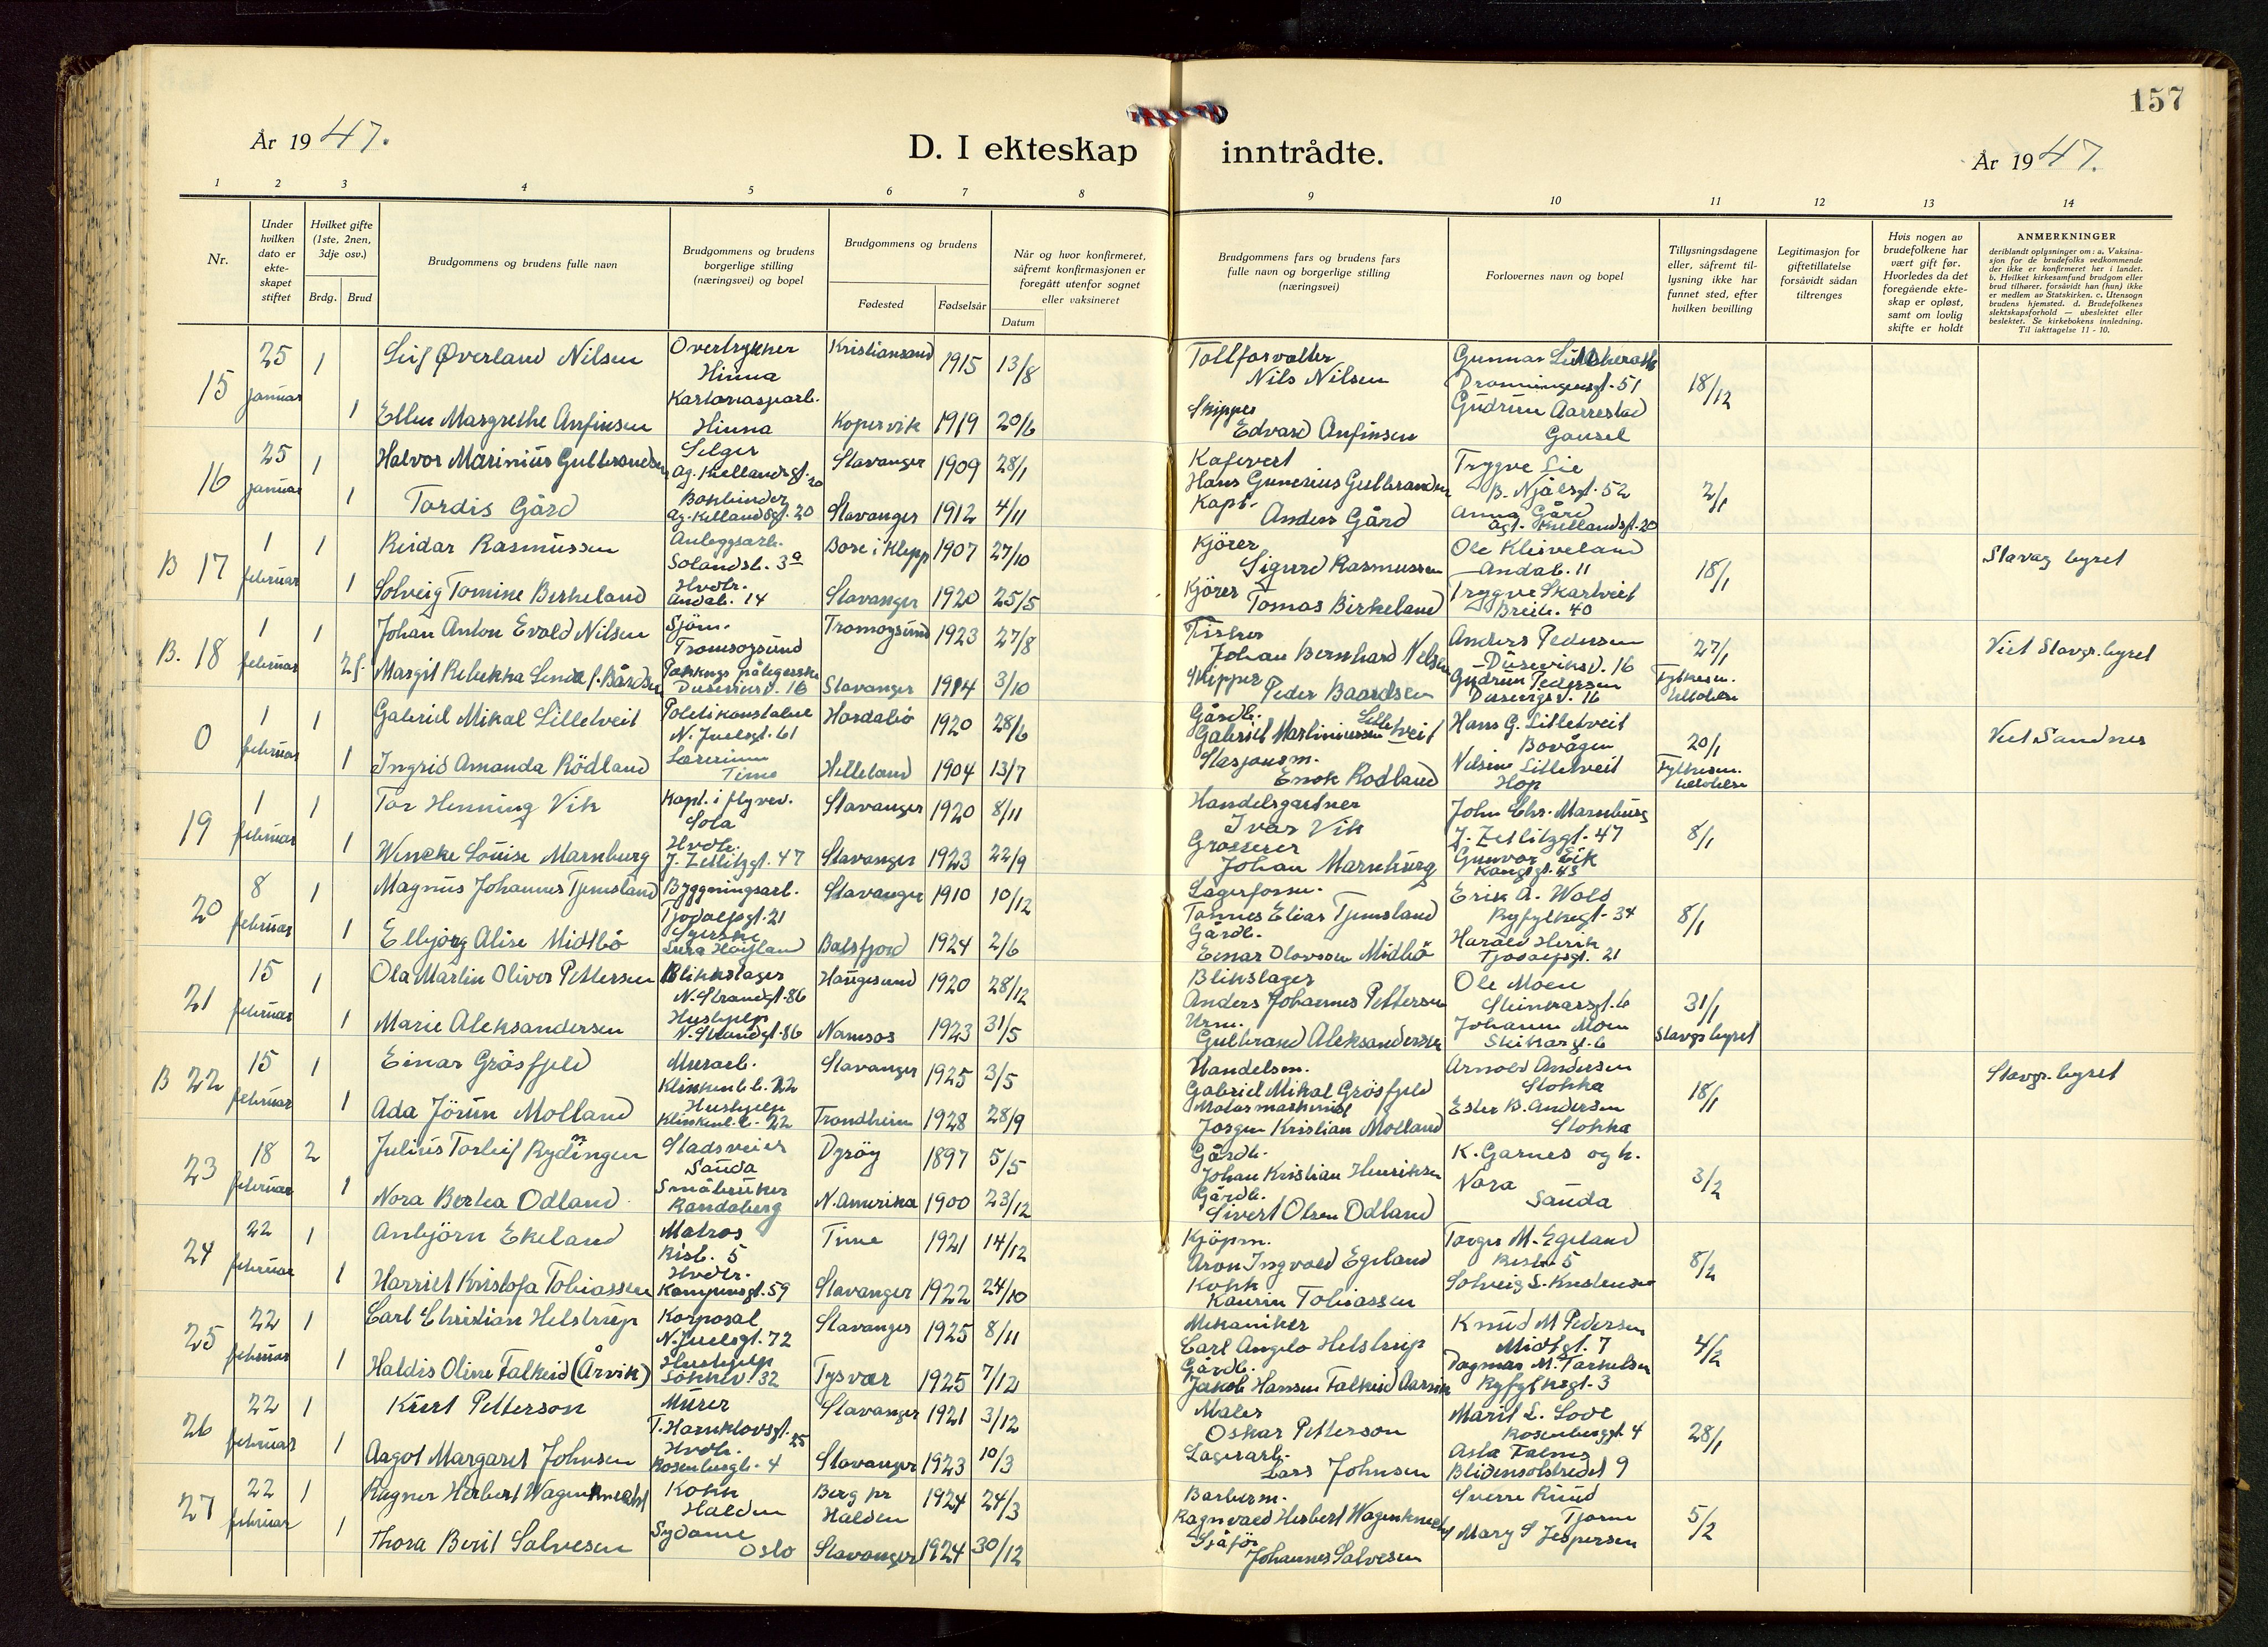 157
År 1947.
D. I ekteskap inntrådte.
År 1947.
1 2 3 4 5 6 7 8 9 10 11 12 13 14
Nr.
Under hvilken dato er ekteskapet stiftet
Hvilket gifte (1ste, 2nen, 3dje osv.)
Brdg. Brud
Brudgommens og brudens fulle navn
Brudgommens og brudens borgerlige stilling (næringsvei) og bopel
Brudgommens og brudens
Fødested Fødselsår
Når og hvor konfirmeret, såfremt konfirmasjonen er foregått utenfor sognet eller vaksineret
Datum
Brudgommens fars og brudens fars fulle navn og borgerlige stilling (næringsvei)
Forlovernes navn og bopel
Tillysningsdagene eller, såfremt tillysning ikke har funnet sted, efter hvilken bevilling
Legitimasjon for giftetillatelse forsåvidt sådan tiltrenges
Hvis nogen av brudefolkene har vært gift før. Hvorledes da det foregående ekteskap er opløst, samt om lovlig skifte er holdt
ANMERKNINGER
deriblandt oplysninger om: a. Vaksinasjon for de brudefolks vedkommende der ikke er konfirmeret her i landet. b. Hvilket kirkesamfund brudgom eller brud tilhører, forsåvidt han (hun) ikke er medlem av Statskirken. c. Utensogn brudens hjemsted. d. Brudefolkenes slektskapsforhold — ubeslektet eller beslektet. Se kirkebokens innledning. Til iakttagelse 11 - 10.
15 25 januar 1 Leif Øverland Nilsen Overtrykker Hinna Kristiansand 1915 13/8 Tollforvalter Nils Nilsen Gunnar Dronningensgt. 51 18/12
1 Ellen Margrethe Anfinsen Kartonasjearb. Hinna Kopervik 1919 20/6 Skipper Edvard Anfinsen Gudrun Aarrestad Gausel
16 25 januar 1 Halvor Marinius Gulbrandsen Selger Ag. Kiellandsgt. 20 Stavanger 1909 28/1 Kafevert Hans Gunerius Gulbrandsen Trygve Lie B. Njålsgt. 52 2/1
1 Tordis Gård Bokbinder Ag. Kiellandsgt. 20 Stavanger 1912 4/11 Kapt. Anders Gård Anna Gård Agt. Kiellandsgt. 20
B 17 1 februar 1 Reidar Rasmussen Anleggsarb. Solandsb. 3a Bore i Klepp 1907 27/10 Kjörer Sigurd Rasmussen Ole Kleiveland Andab. 11 18/1 Stavag byret
1 Solveig Tomine Berkeland Hvdtr. Andab. 14 Stavanger 1920 25/5 Kjörer Tomas Birkeland Trygve Skartveit Breib. 40
B. 18 1 februar 1 Johan Anton Evald Nilsen Sjöm. Tromsøysund Tromøysund 1923 27/8 Fisker Johan Bernhard Nilsen Anders Pedersen Duseviksv. 16 27/1 Viet Stavgr. byret
2f. Margit Rebekka Lende f. Bårdsen Pakknings pålegerske Dusevigsv. 16 Stavanger 1914 3/10 Skipper Peder Baardsen Gudrun Pedersen Dusevigsv. 16 Fylkesm. tillatelse
0 1 februar 1 Gabriel Mikal Lilletveit Politikonstabel N. Juelsgt. 61 Hordabö 1920 28/6 Gårdb. Gabriel Martiniussen Lilletveit Hans G. Lilletveit Bovågen 20/1 Viet Sandnes
1 Ingrid Amanda Rödland Lærerinne Time Helleland 1904 13/7 Stasjonsm. Enok Rodland Nilsine Lilletveit Hop Fylkesm. tillatelse
19 1 februar 1 Tor Henning Vik Kapt. i flyvev. Sola Stavanger 1920 8/11 Handelsgartner Ivar Vik John Chr. Marnburg J. Zetlitzgt. 47 8/1
1 Wencke Louise Marnburg Hvdtr. J. Zetlitzgt. 47 Stavanger 1923 22/9 Grosserer Johan Marnburg Gunvor Eik Kongsgt. 43
20 8 februar 1 Magnus Johannes Tjemsland Byggningsarb. Tjodolfsgt. 21 Stavanger 1910 10/12 Lagerform. Tönnes Elias Tjemsland Erik A. Wold Ryfylkegt. 34 8/1
1 Elbjörg Alise Midtbö Syerske Lura Höiland Balsfjord 1924 2/6 Gårdb. Einar Olavssen Midtbö Harald Herik Tjodolfsgt. 21
21 15 februar 1 Ola Martin Oliver Pettersen Blikkslager N. Strandgt. 86 Haugesund 1920 28/12 Blikslager Anders Johannes Pettersen Ole Moen Steinkarsgt. 6 31/1
1 Marie Aleksandersen Hushjelp N. Strandgt. 86 Namsos 1923 31/5 Urm. Gulbrand Aleksandersen Johanne Moen Steikargt. 6 Stavgr byret
B 22 15 februar 1 Einar Grösfjeld Murarb. Klinkenb.b. 22 Stavanger 1925 3/5 Handelsm. Gabriel Mikal Grösfjeld Arnold Andersen Stokka 18/1 Stavgr. byret
1 Ada Jörun Molland Hushjelp Klinkenb.b. 22 Trondheim 1928 28/9 Motormaskinist Jörgen Kristian Molland Ester B. Andersen Stokka
23 18 februar 2 Julius Torleif Rydningen Stadsveier Sauda Dyröy 1897 5/5 Gårdb. Johan Kristian Henriksen K. Garnes og h. 3/2
1 Nora Bertea Odland Småbruker Randaberg N. Amerika 1900 23/12 Gårdb. Sivert Olsen Odland Nora Sauda
24 22 februar 1 Anbjörn Ekeland Matros Risb. 5 Time 1921 14/12 Kjöpm. Aron Ingvald Egeland Torger M. Egeland Risb. 5 8/2
1 Harriet Kristofa Tobiassen Hvdtr. Kampensgt. 59 Stavanger 1922 24/10 Kokk Kaurin Tobiassen Solveig L. Kristensen
25 22 februar 1 Carl Christian Helstrup Korporal N. Juelsgt. 72 Stavanger 1925 8/11 Mekaniker Carl Angelo Helstrup Knud M Pedersen Midtgt. 7 4/2
1 Haldis Oline Falkeid (Årvik) Hushjelp Lökkev. 32 Tysvær 1925 7/12 Gårdb. Jakob Hansen Falkeid Aarvik Dagmar M. Torkelsen Ryfylkegt. 3
26 22 februar 1 Kurt Petterson Murer T. Hornklovsgt. 25 Stavanger 1921 3/12 Maler Oskar Petterson Marit L. Lode Rosenberggt. 4 28/1
1 Aagot Margaret Johnsen Hvdtr. Rosenbergb. 4 Stavanger 1923 10/3 Lagerarb. Lars Johnsen Asta Falnes Blidensolstredet 9
27 22 februar 1 Ragnar Herbert Wagenknecht Kokk Halden Berg pr Halden 1924 24/3 Barberm. Ragnvald Herbert Wagenknecht Sverre Ruud Tjorne 5/2
1 Thora Berit Salvesen Sydame Oslo Stavanger 1924 30/12 Sjåför Johannes Salvesen Mary S Jespersen